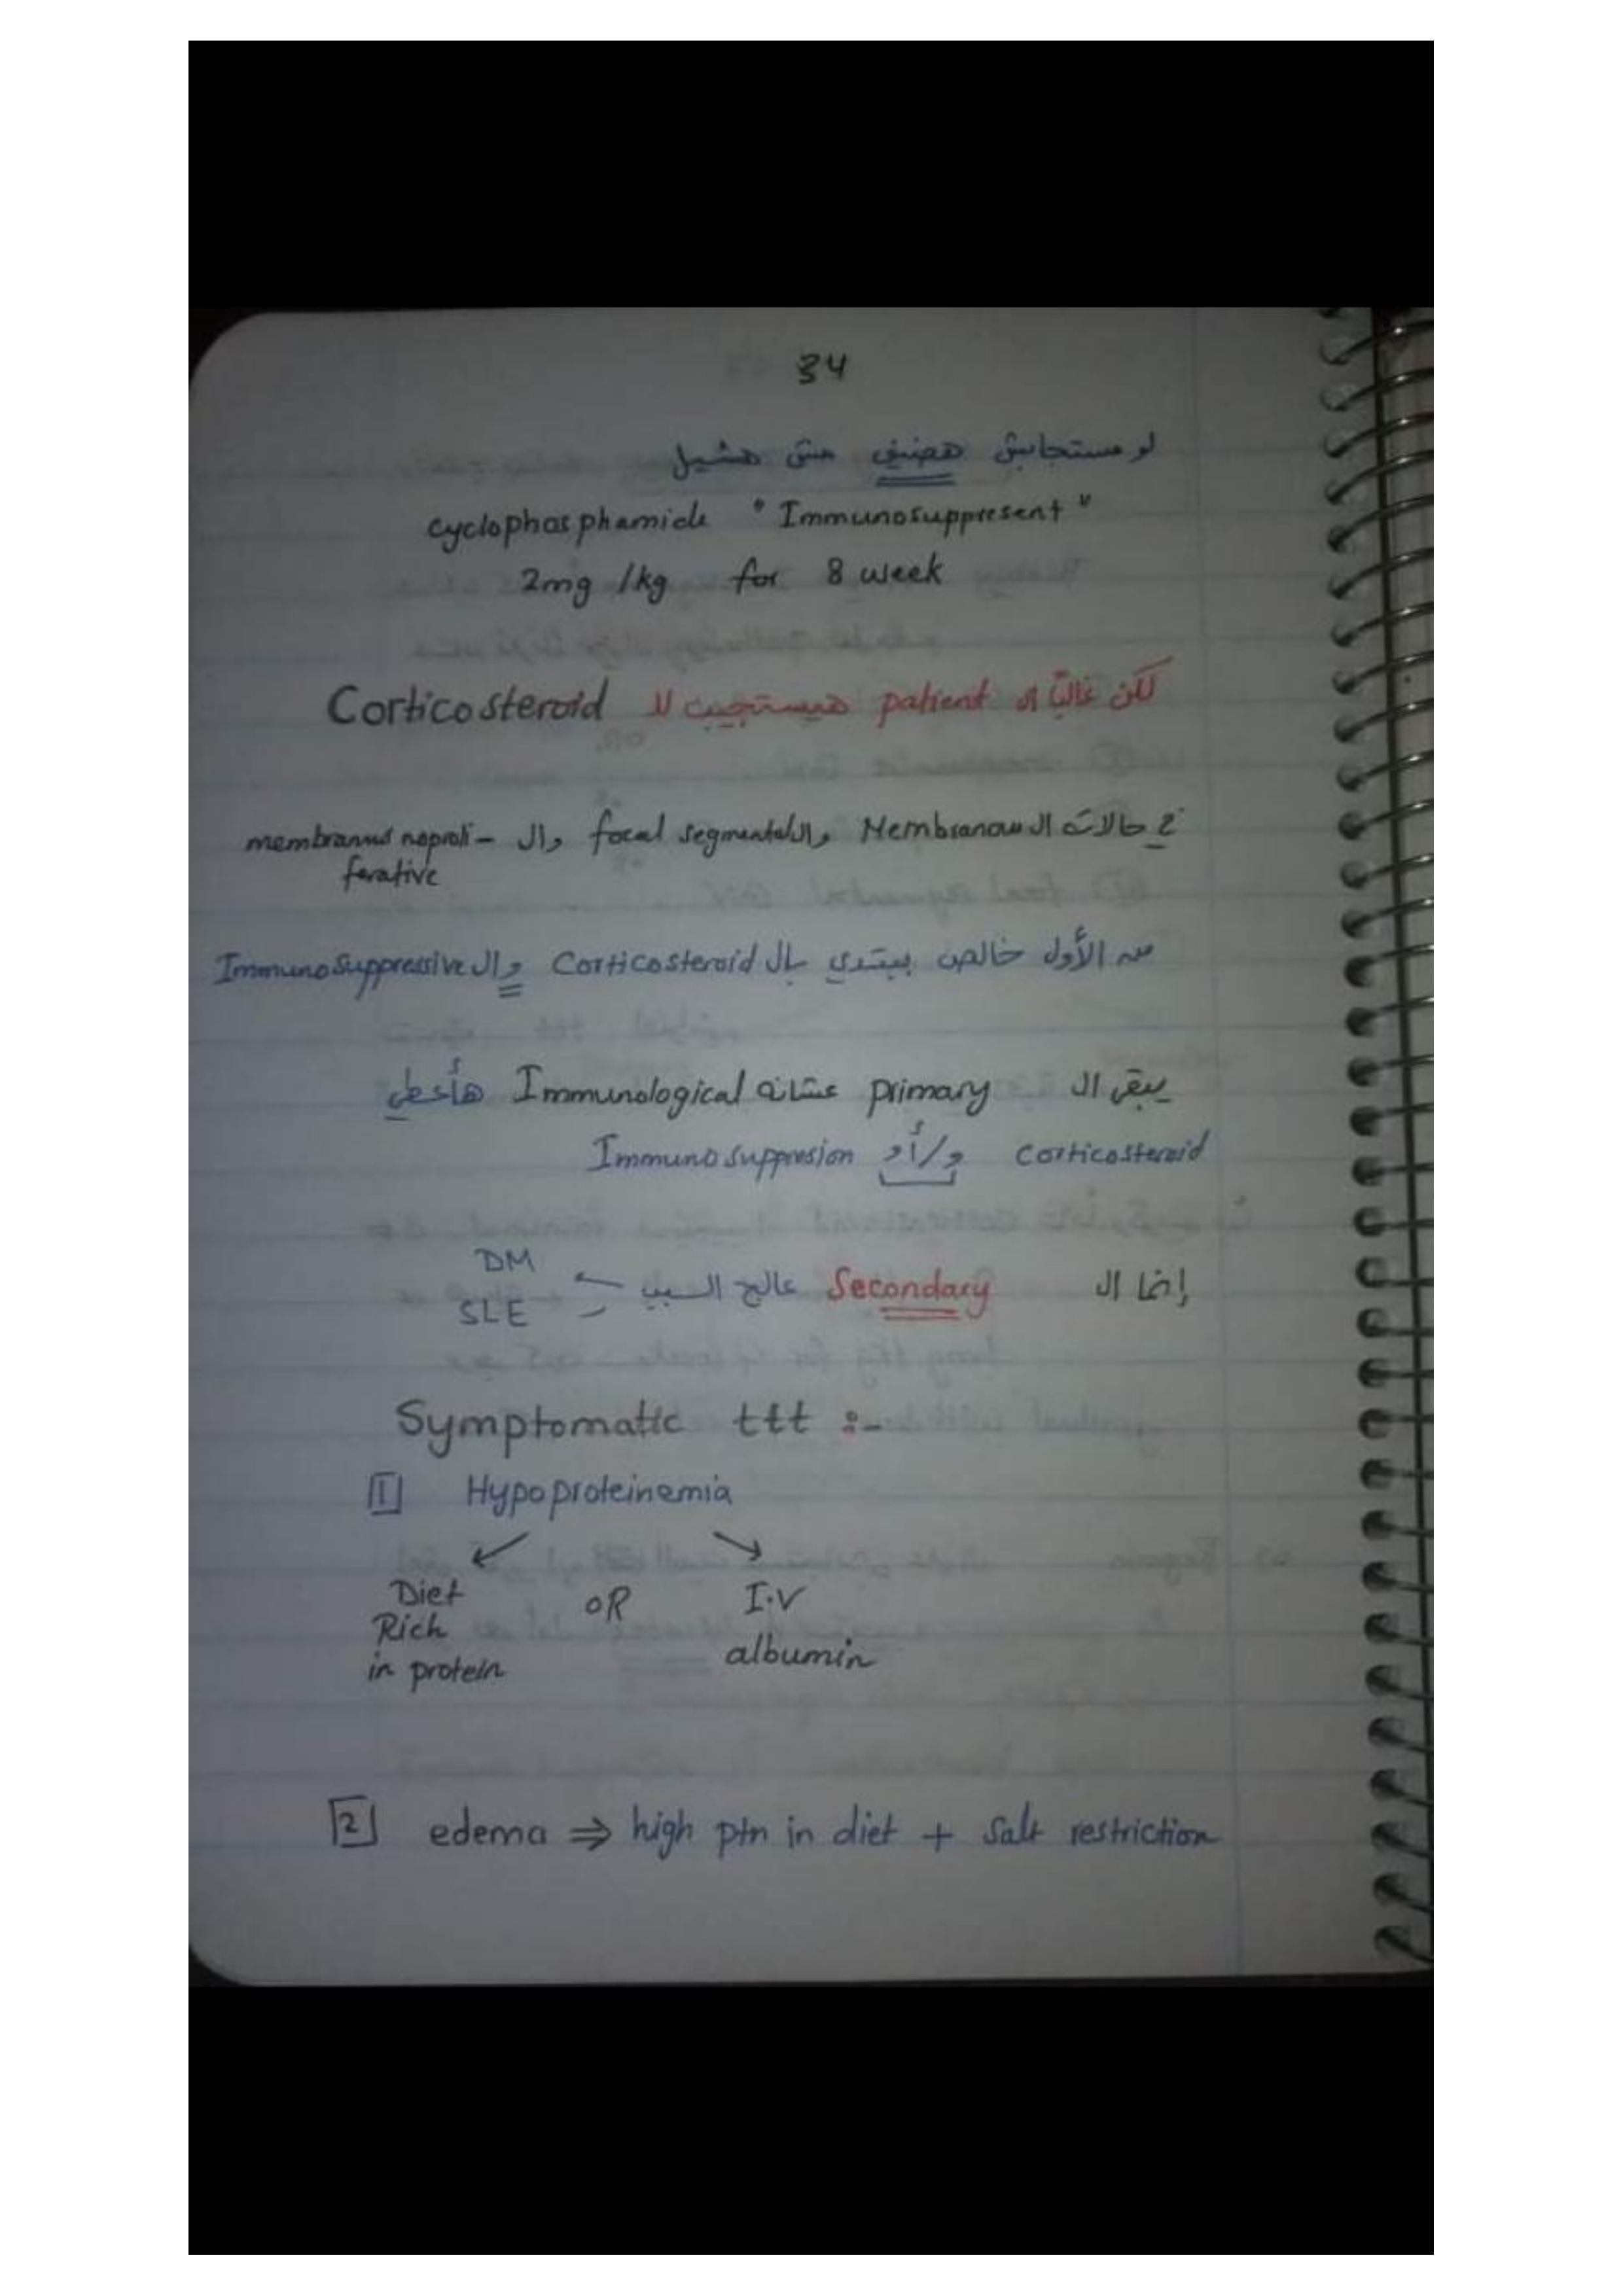 34
لو مستجابش هضيف مش هشيل
cyclophosphamide " Immunosuppresent "
2mg /kg for 8 week
لكن غالباً ال patient هيستجيب لل Corticosteroid
في حالات ال Membranous وال focal segmental وال membranus noproli-
ferative
من الأول خالص بيبتدي بال Corticosteroid وال Immunosuppressive
يبقى ال primary عشانه Immunological هأعطي
corticosteroid و/أو Immunosuppresion
إنما ال Secondary عالج السبب
DM
SLE
Symptomatic ttt :-
1 Hypoproteinemia
Diet OR I.V
Rich albumin
in protein
2 edema ⇒ high ptn in diet + Salt restriction